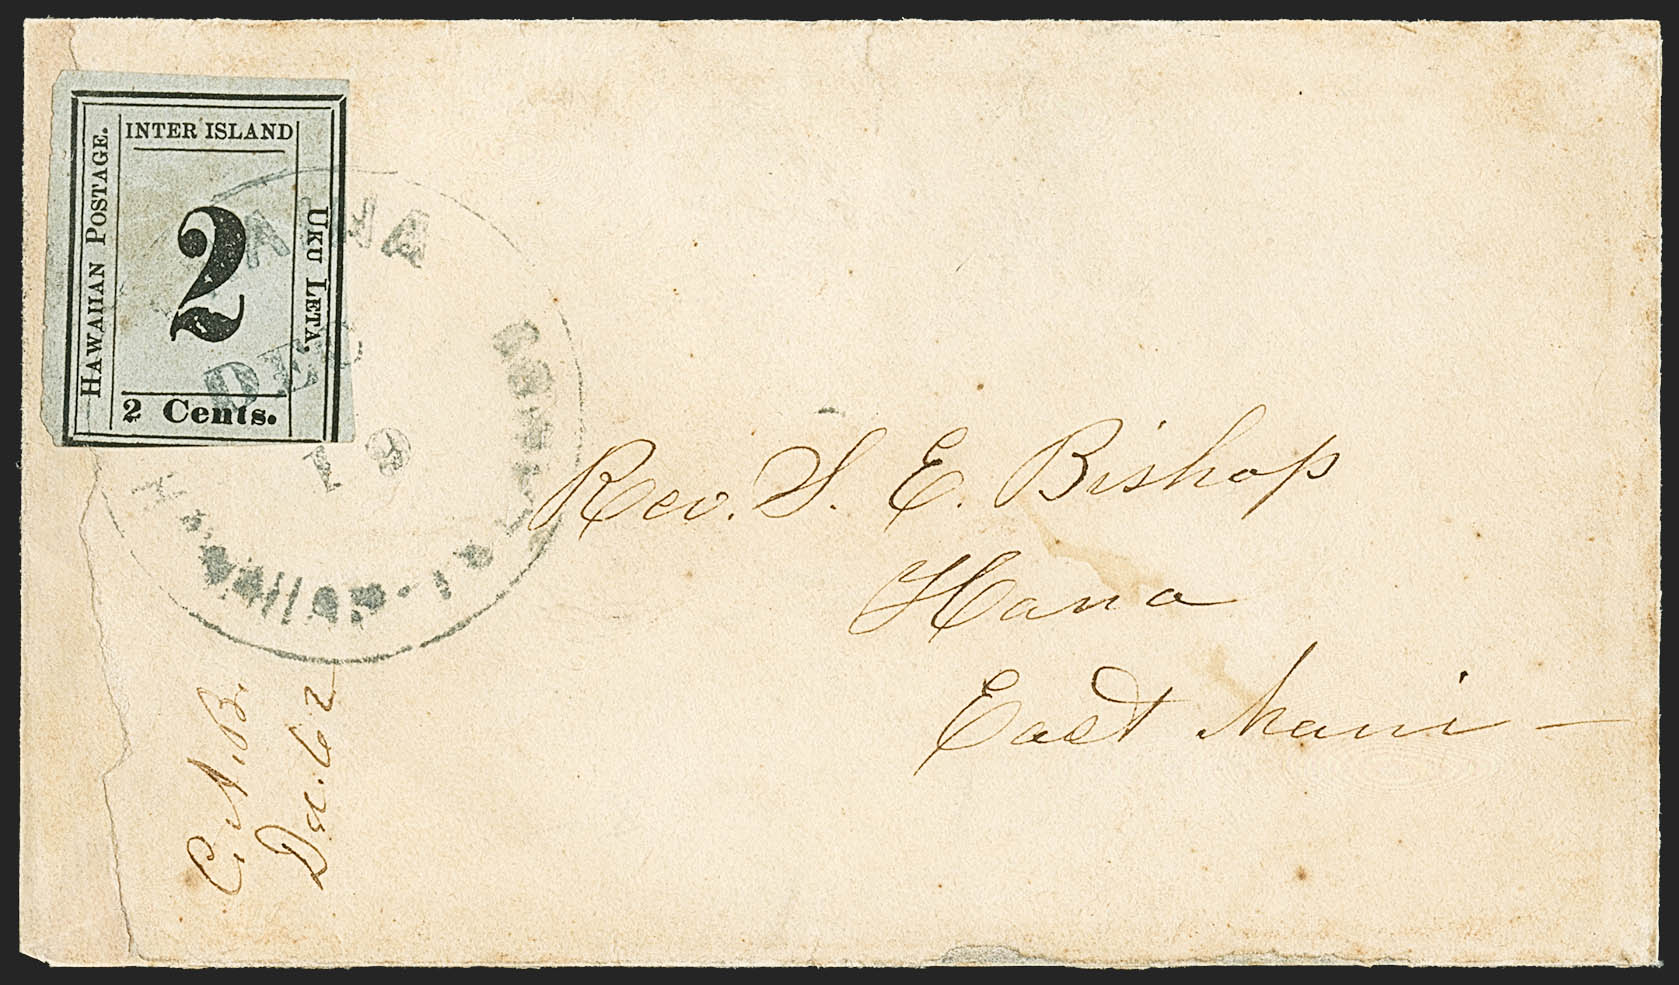 INTER ISLAND
HAWAIIAN POSTAGE.
UKU LETA.
2
2 Cents.
DEC
18
Rev. S. E. Bishop
Hana
East Maui —
C. A. B.
Dec. 62